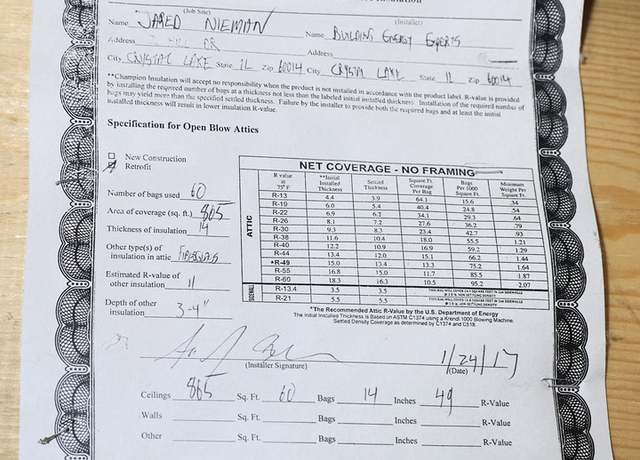 (Job Site) (Installer)
Name JARED NIEMAN Name BUILDING ENERGY EXPERTS
Address DR Address
City CRYSTAL LAKE State IL Zip 60014 City CRYSTAL LAKE State IL Zip 60014
**Champion Insulation will accept no responsibility when the product is not installed in accordance with the product label. R-value is provided
by installing the required number of bags at a thickness not less than the labeled initial installed thickness. Installation of the required number of
bags may yield more than the specified settled thickness. Failure by the installer to provide both the required bags and at least the initial
installed thickness will result in lower insulation R-value.
Specification for Open Blow Attics
New Construction
Retrofit
Number of bags used 60
Area of coverage (sq. ft.) 865
Thickness of insulation 14
Other type(s) of
insulation in attic FIBERGLASS
Estimated R-value of
other insulation 11
Depth of other
insulation 3-4"
NET COVERAGE - NO FRAMING
R value @ 75° F **Initial Installed Thickness Settled Thickness Square Ft. Coverage Per Bag Bags Per 1000 Square Ft. Minimum Weight Per Square Ft.
ATTIC
R-13 4.4 3.9 64.1 15.6 .34
R-19 6.0 5.4 40.4 24.8 .54
R-22 6.9 6.2 34.1 29.3 .64
R-26 8.1 7.2 27.6 36.2 .79
R-30 9.3 8.3 23.4 42.7 .93
R-38 11.6 10.4 18.0 55.5 1.21
R-40 12.2 10.9 16.9 59.2 1.29
R-44 13.4 12.0 15.1 66.2 1.44
*R-49 15.0 13.4 13.3 75.2 1.64
R-55 16.8 15.0 11.7 85.5 1.87
R-60 18.3 16.3 10.5 95.2 2.07
R-13.4 3.5 3.5
R-21 5.5 5.5
*The Recommended Attic R-Value by the U.S. Department of Energy
The Initial Installed Thickness is Based on ASTM C1374 using a Krendl 1000 Blowing Machine.
Settled Density Coverage as determined by C1374 and C518.
1/24/17
(Installer Signature) (Date)
Ceilings 865 Sq. Ft. 60 Bags 14 Inches 49 R-Value
Walls Sq. Ft. Bags Inches R-Value
Other Sq. Ft. Bags Inches R-Value